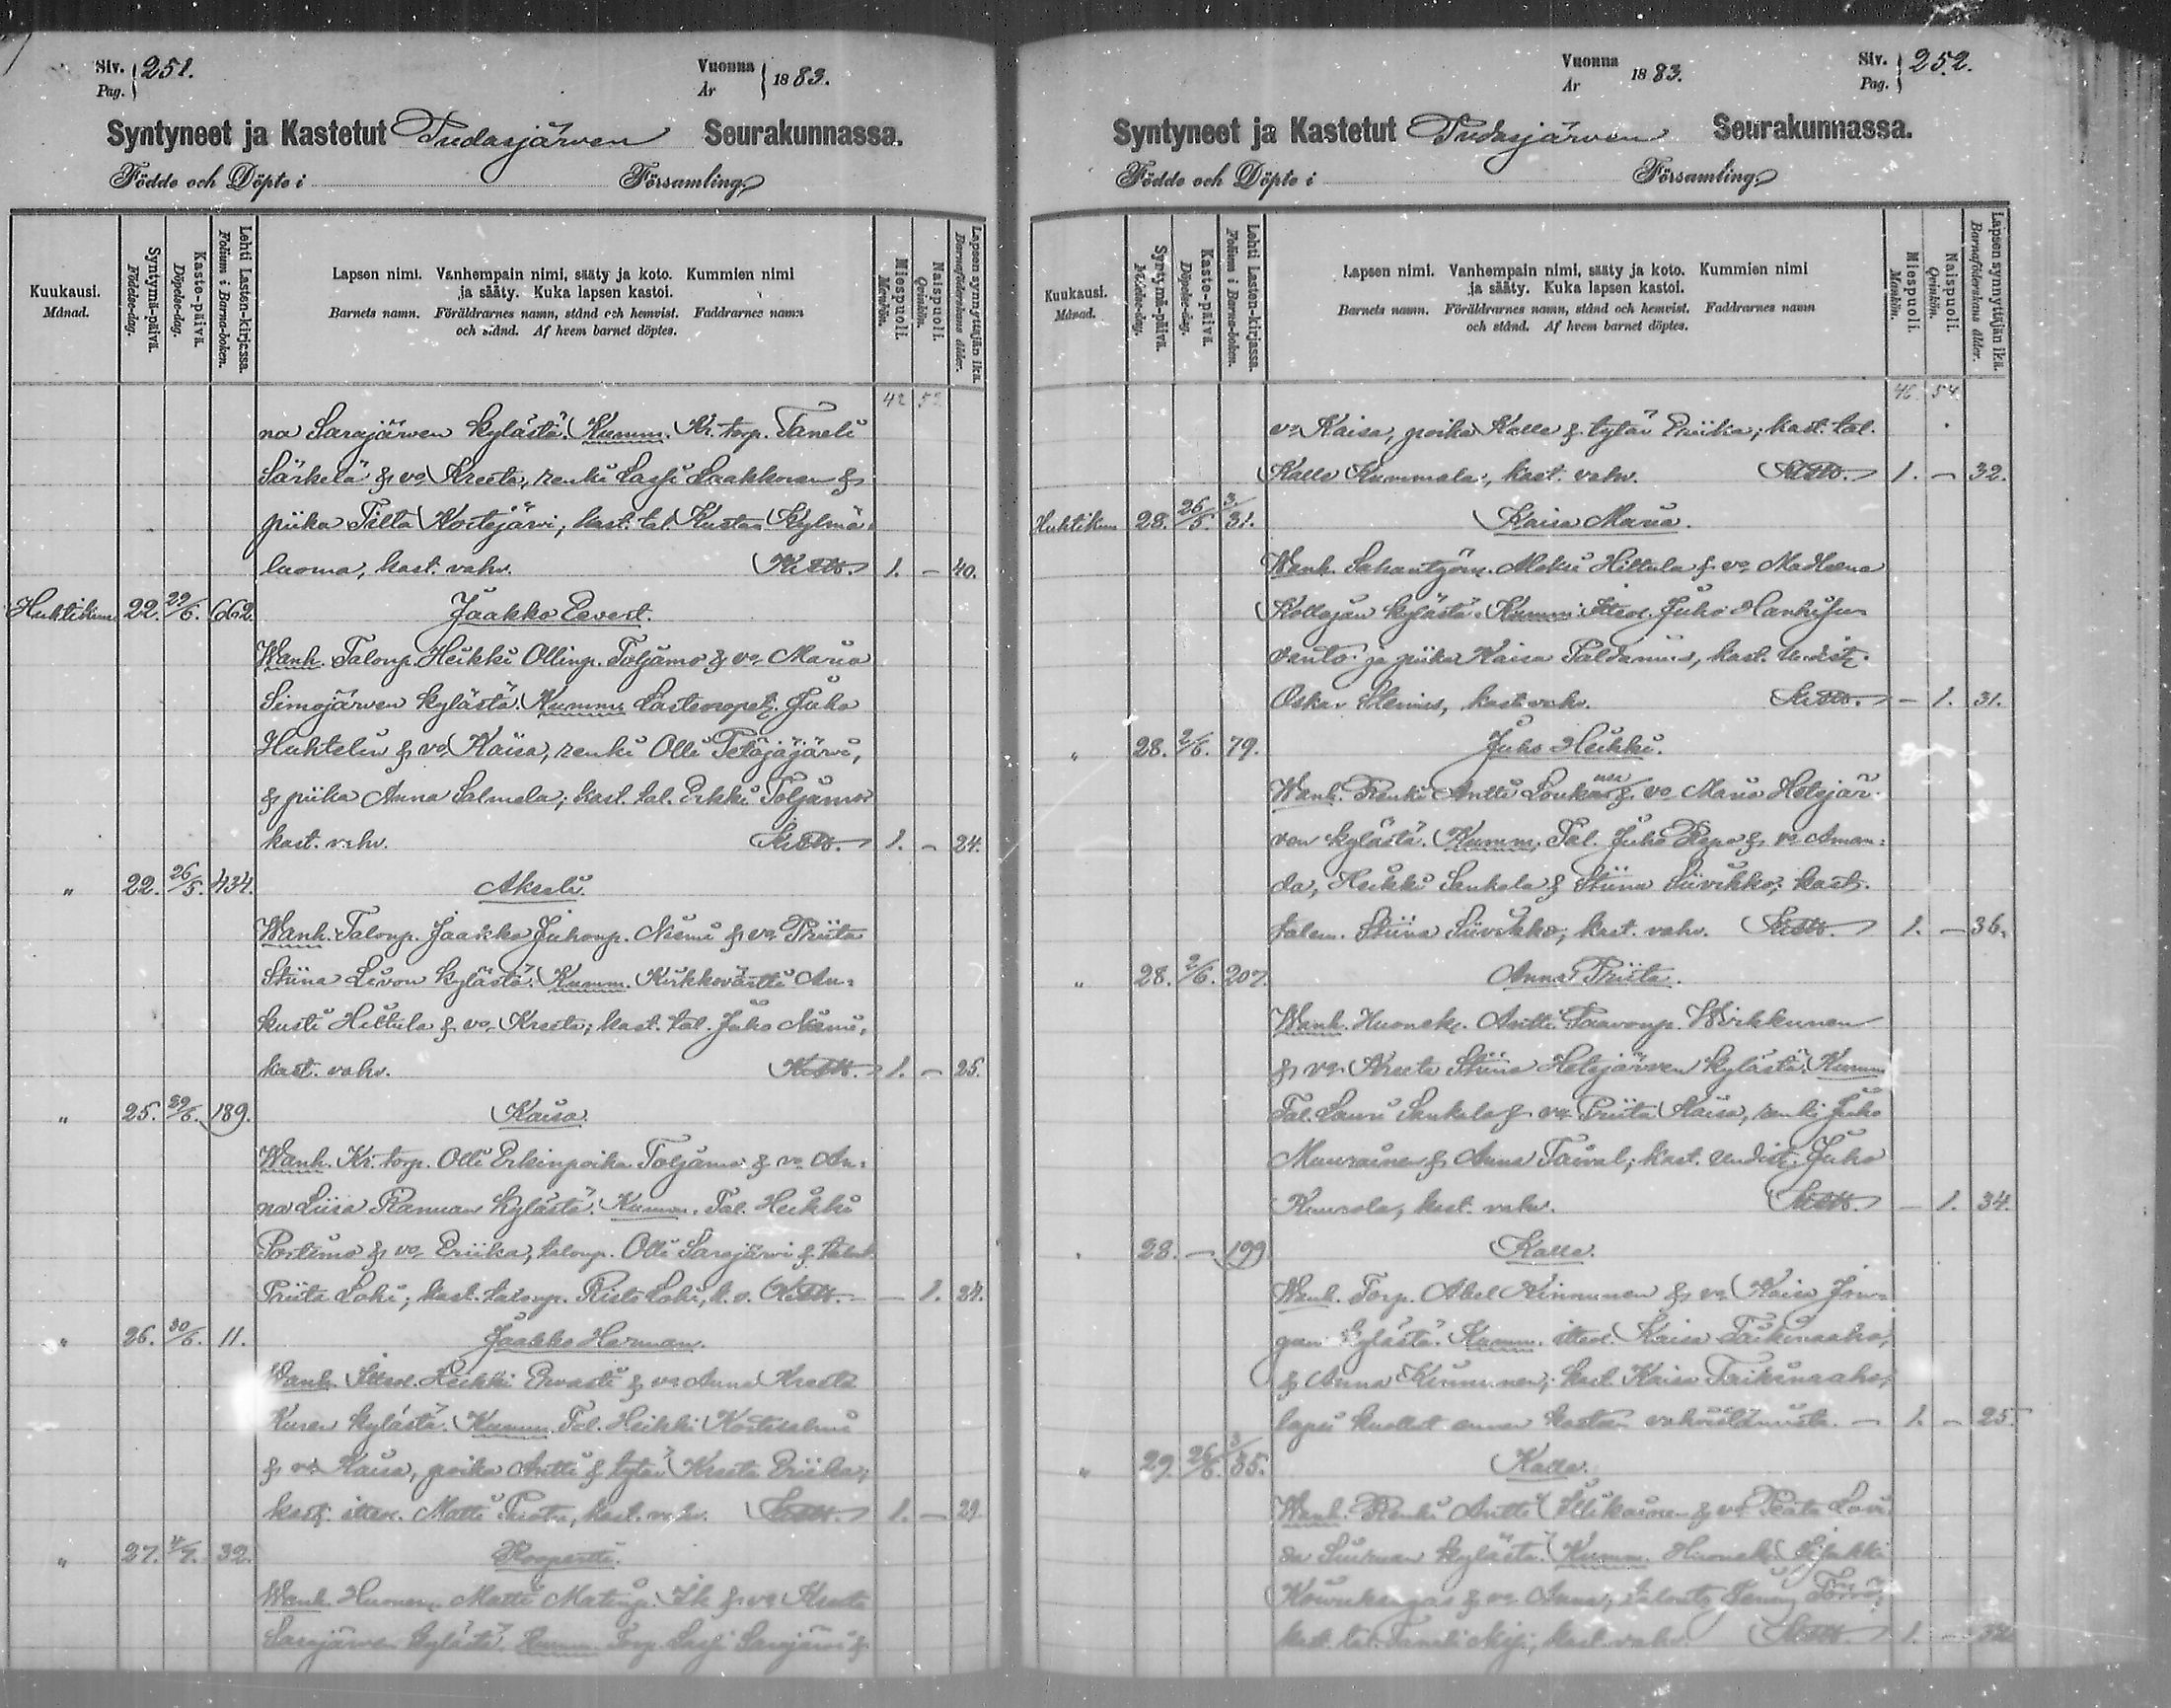 Siv. 251.
Pag.
Vuonna 1883.
År
Syntyneet ja Kastetut Pudasjärven Seurakunnassa.
Födde och Döpte i Församling
Kuukausi.
Månad.
Syntymä-päivä.
Födelse-dag.
Kaste-päivä.
Döpelse-dag.
Lehti Lasten-kirjassa.
Folium i Barna-boken.
Lapsen nimi. Vanhempain nimi, sääty ja koto. Kummien nimi
ja sääty. Kuka lapsen kastoi.
Barnets namn. Föräldrarnes namn, stånd och hemvist. Faddrarnes namn
och stånd. Af hvem barnet döptes.
Miespuoli.
Mankön.
Naispuoli.
Qvinkön.
Lapsen synnyttäjän ikä.
Barnaföderskans ålder.
42 52
na Sarajärven kylästä. Kumm. Kr. torp. Taneli
Särkelä & vo Kreeta, renki Lassi Laakkonen &
piika Tilta Kortejärvi; kast. tal. Kustaa Kylmä-
luoma, kast. vahv. 1. – 40.
Huhtikuu 22. 29/6. 662. Jaakko Eevert.
Wanh. Talonp. Heikki Ollinp. Toljamo & vo Maria
Simojärven kylästä. Kumm. Lastenopett. Juho
Huhtelin & vo Kaisa, renki Olli Petäjäjärvi,
& piika Anna Salmela; kast. tal. Erkki Toljamo
kast. vahv. 1. – 24.
" 22. 26/5. 434. Akseli.
Wanh. Talonp. Jaakko Juhonp. Niemi & vo Priita
Stiina Livon kylästä. Kumm. Kirkkovärtti Au-
kusti Hiltula & vo Kreeta; kast. tal. Juho Niemi,
kast. vahv. 1. – 25.
" 25. 29/6. 189. Kaisa.
Wanh. Kr. torp. Olli Erkinpoika Toljamo & vo An-
na Liisa Ranuan kylästä. Kumm. Tal. Heikki
Portimo & vo Eriika, talonp. Olli Sarajärvi &
Priita Lohi; kast. talonp. Risto Lohi, k. v. – 1. 24.
" 26. 30/6. 11. Jaakko Herman.
Wanh. Itsell. Heikki Ervasti & vo Anna Kreeta
Kuren kylästä. Kumm. Tal. Heikki Kortesalmi
& vo Kaisa, poika Antti & tytär Kreeta Eriika;
kast. itsell. Matti kast. vahv. 1. – 29.
" 27. 32. Roopertti.
Wanh. Matti Matinp. & vo Kreeta
Sarajärven kylästä. Kumm. Torp. Lassi Sarajärvi &
Vuonna 1883.
År
Siv. 252.
Pag.
Syntyneet ja Kastetut Pudasjärven Seurakunnassa.
Födde och Döpte i Församling
Kuukausi.
Månad.
Syntymä-päivä.
Födelse-dag.
Kaste-päivä.
Döpelse-dag.
Lehti Lasten-kirjassa.
Folium i Barna-boken.
Lapsen nimi. Vanhempain nimi, sääty ja koto. Kummien nimi
ja sääty. Kuka lapsen kastoi.
Barnets namn. Föräldrarnes namn, stånd och hemvist. Faddrarnes namn
och stånd. Af hvem barnet döptes.
Miespuoli.
Mankön.
Naispuoli.
Qvinkön.
Lapsen synnyttäjän ikä.
Barnaföderskans ålder.
46. 54.
vo Kaisa, poika Kalle & tytär Eriika; kast. tal.
Kalle Kummala, kast. vahv. 1. – 32.
Huhtikuu 28. 26/5. 3/31. Kaisa Maria.
Wanh. Sahantyöm. Aleksi Hiltula & vo Madleena
Kollajan kylästä. Kumm. Itsell. Juho
ja piika Kaisa Paldanius, kast.
Oskar Stenius, kast. vahv. – 1. 31.
" 28. 2/6. 79. Juho Heikki.
Wanh. Renki Antti & vo Maria Hetejär-
ven kylästä. Kumm. Tal. Juho Repo & vo Aman-
da, Heikki Sankala & Stiina Siivikko; kast.
talem. Stiina Siivikko; kast. vahv. 1. – 36.
" 28. 2/6. 207. Anna Priita.
Wanh. Huonek. Antti Paavonp. Wirkkunen
& vo Kreeta Stiina Hetejärven kylästä. Kumm.
Tal. Lauri Sankala & vo Priita Kaisa, renki Juho
Muurainen & Anna Taival; kast. Juho
kast. vahv. – 1. 34.
28. – 199 Kalle.
Wanh. Torp. Abel Kinnunen & vo Kaisa Jon-
gun kylästä. Kumm. itsell. Kaisa Taikinaaho,
& Anna Kinnunen; kast. Kaisa Taikinaaho;
lapsi kuollut ennen kasteen vahvistamista. 1. – 25.
" 29. 26/6. 3/55. Kalle.
Wanh. Renki Antti Illikainen & vo Lovi-
sa kylästä. Kumm. Huonek.
& vo Anna, Jenny
kast. tal. Taneli kast. vahv. 1. –